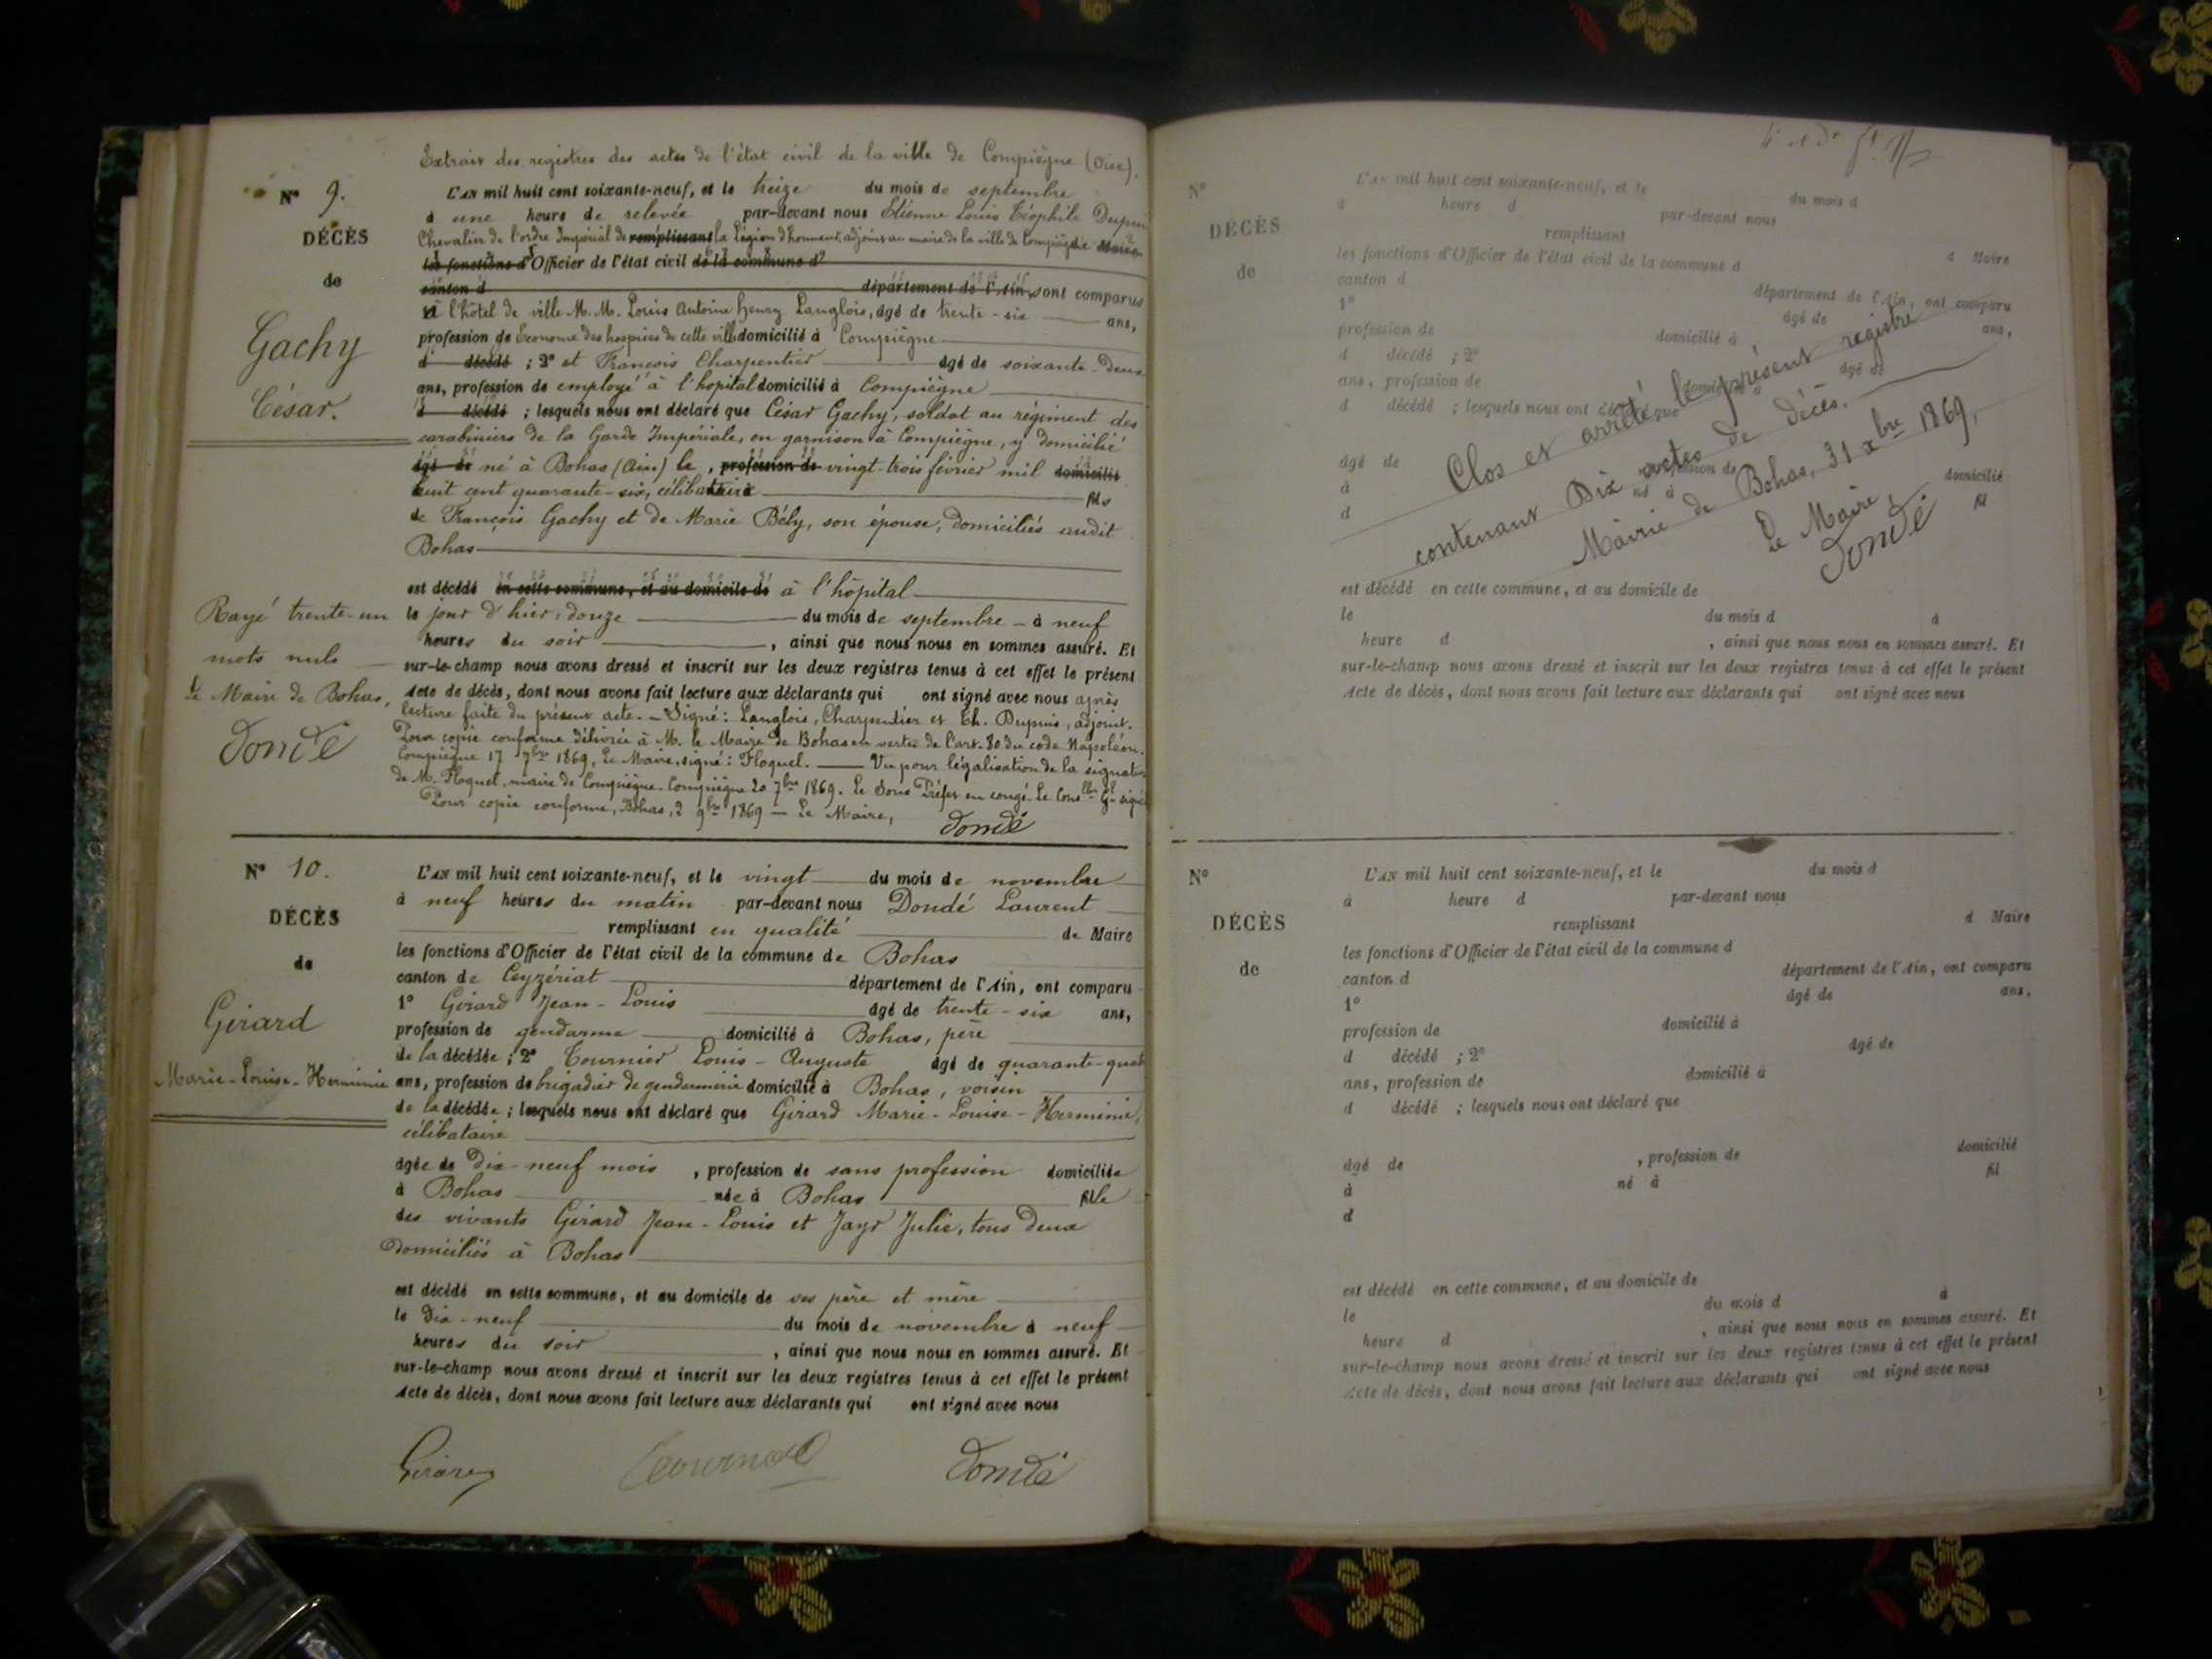 Extrait des registres des actes de l'état civil de la ville de Compiègne (Oise).
N° 9.
DÉCÈS
de
Gachy
César.
L'AN mil huit cent soixante-neuf, et le treize du mois de septembre
à une heure de relevée par-devant nous Etienne Louis Téophile Dupuis
Chevalier de l'ordre Impérial de remplissant la Légion d'honneur, adjoint au maire de la ville de Compiègne Maire
les fonctions d'Officier de l'état civil de la commune d
canton d département de l'Ain, sont comparus
à l'hôtel de ville M. M. Louis Antoine henry Langlois, âgé de trente-six ans,
profession de Econome des hospices de cette ville domicilié à Compiègne
d décédé ; 2° et François Charpentier âgé de soixante-deux
ans, profession de employé à l'hopital domicilié à Compiègne
d décédé ; lesquels nous ont déclaré que César Gachy, soldat au régiment des
carabiniers de la Garde Impériale, en garnison à Compiègne, y domicilié
âgé de né à Bohas (Ain) le , profession de vingt-trois février mil domicilié
huit cent quarante-six, célibataire fils
de François Gachy et de Marie Bély, son épouse, domiciliés audit
Bohas
est décédé en cette commune, et au domicile de à l'hôpital
le jour d'hier, douze du mois de septembre à neuf
heures du soir , ainsi que nous nous en sommes assuré. Et
sur-le-champ nous avons dressé et inscrit sur les deux registres tenus à cet effet le présent
Acte de décès, dont nous avons fait lecture aux déclarants qui ont signé avec nous après
lecture faite du présent acte. - Signé : Langlois, Charpentier et Th. Dupuis, adjoint.
Pour copie conforme délivrée à M. le Maire de Bohas en vertu de l'art. 80 du code Napoléon.
Compiègne 17 7bre 1869, Le Maire, signé : Floquel. Vu pour légalisation de la signature
de M. Floquel, maire de Compiègne. Compiègne 20 7bre 1869. Le Sous Préfet en congé. Le Conser Gl signé
Pour copie conforme, Bohas, 2 9bre 1869 - Le Maire, Dondé
Rayé trente-un
mots nuls
Le Maire de Bohas,
Dondé
N° 10.
DÉCÈS
de
Girard
Marie-Louise-Herminie
L'AN mil huit cent soixante-neuf, et le vingt du mois de novembre
à neuf heures du matin par-devant nous Dondé Laurent
remplissant en qualité de Maire
les fonctions d'Officier de l'état civil de la commune de Bohas
canton de Ceyzériat département de l'Ain, ont comparu
1° Girard Jean-Louis âgé de trente-six ans,
profession de gendarme domicilié à Bohas, père
de la décédée ; 2° Tournier Louis-Auguste âgé de quarante-quat
ans, profession de brigadier de gendarmerie domicilié à Bohas, voisin
de la décédée ; lesquels nous ont déclaré que Girard Marie-Louise-Herminie,
célibataire
âgée de dix-neuf mois , profession de sans profession domiciliée
à Bohas née à Bohas fille
des vivants Girard Jean-Louis et Jayr Julie, tous deux
domiciliés à Bohas
est décédé en cette commune, et au domicile de ses père et mère
le dix-neuf du mois de novembre à neuf
heures du soir , ainsi que nous nous en sommes assuré. Et
sur-le-champ nous avons dressé et inscrit sur les deux registres tenus à cet effet le présent
Acte de décès, dont nous avons fait lecture aux déclarants qui ont signé avec nous
Girard Tournier Dondé
N°
DÉCÈS
de
L'AN mil huit cent soixante-neuf, et le du mois d
à heure d par-devant nous
remplissant d Maire
les fonctions d'Officier de l'état civil de la commune d
canton d département de l'Ain, ont comparu
1° âgé de ans,
profession de domicilié à
d décédé ; 2° âgé de
ans, profession de domicilié à
d décédé ; lesquels nous ont déclaré que
âgé de , profession de domicilié
à né à fil
d
Clos et arrêté le présent registre
contenant Dix actes de décès.
Mairie de Bohas, 31 xbre 1869,
Le Maire,
Dondé
est décédé en cette commune, et au domicile de
le du mois d à
heure d , ainsi que nous nous en sommes assuré. Et
sur-le-champ nous avons dressé et inscrit sur les deux registres tenus à cet effet le présent
Acte de décès, dont nous avons fait lecture aux déclarants qui ont signé avec nous
N°
DÉCÈS
de
L'AN mil huit cent soixante-neuf, et le du mois d
à heure d par-devant nous
remplissant d Maire
les fonctions d'Officier de l'état civil de la commune d
canton d département de l'Ain, ont comparu
1° âgé de ans,
profession de domicilié à
d décédé ; 2° âgé de
ans, profession de domicilié à
d décédé ; lesquels nous ont déclaré que
âgé de , profession de domicilié
à né à fil
d
est décédé en cette commune, et au domicile de
le du mois d à
heure d , ainsi que nous nous en sommes assuré. Et
sur-le-champ nous avons dressé et inscrit sur les deux registres tenus à cet effet le présent
Acte de décès, dont nous avons fait lecture aux déclarants qui ont signé avec nous